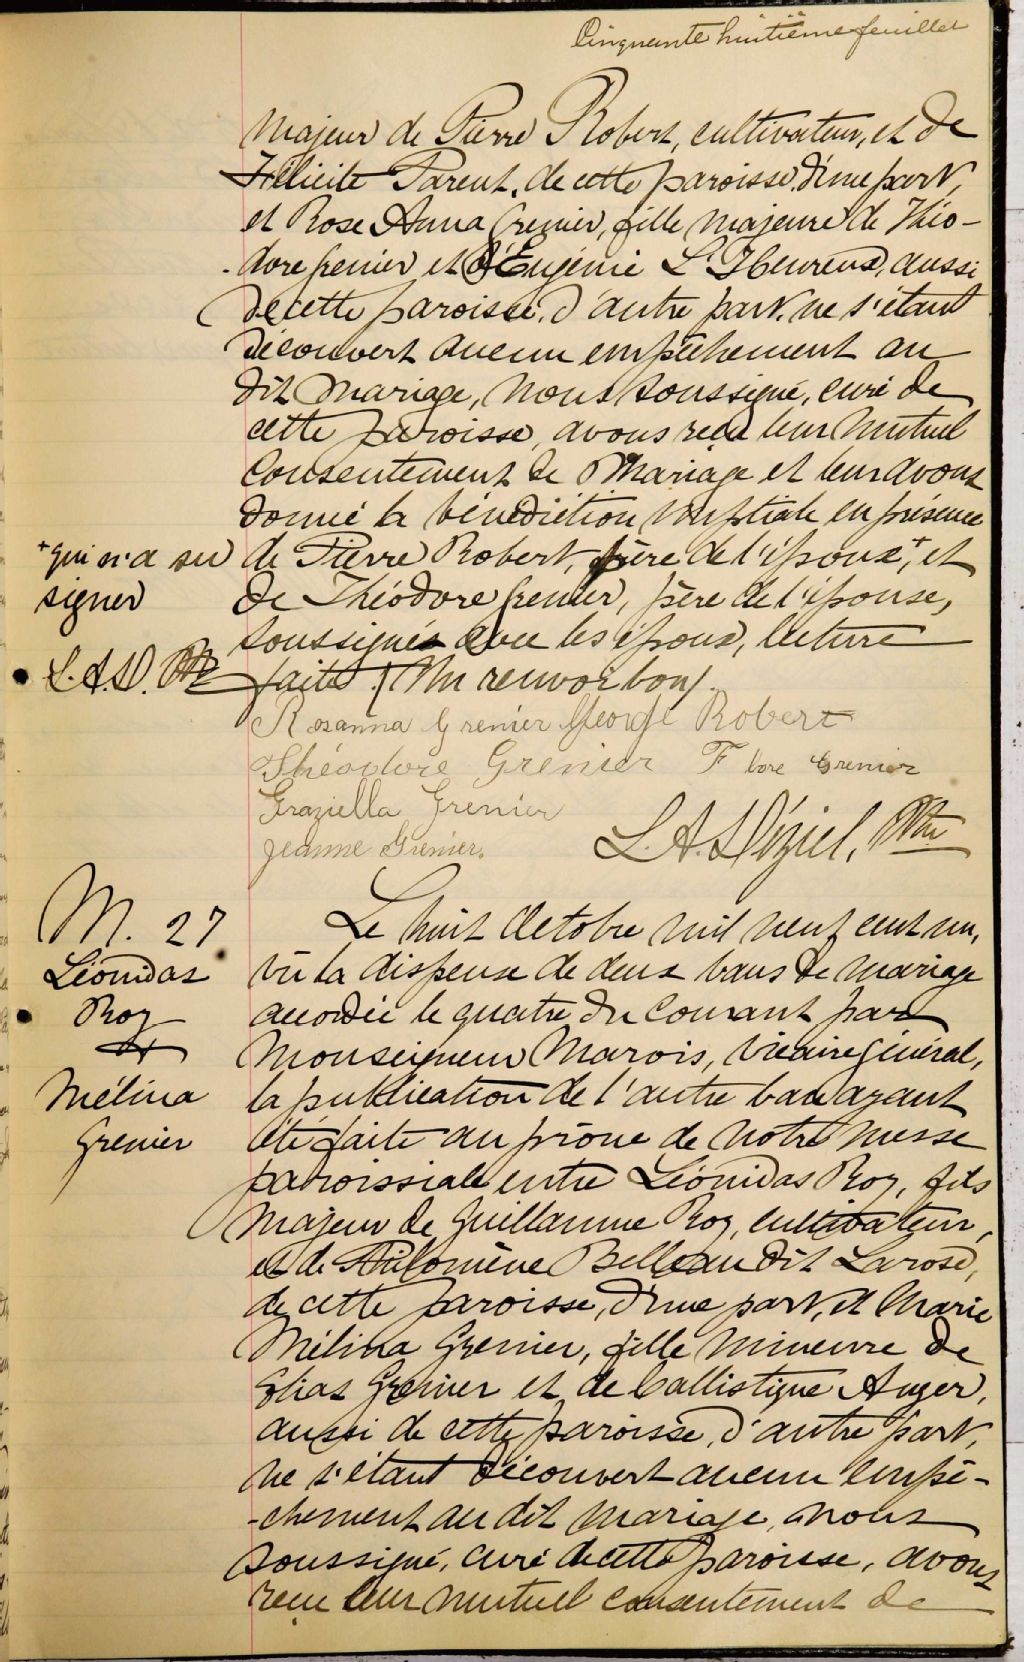 Cinquante huitième feuillet
majeur de Pierre Robert, cultivateur, et de
Félicité Parent, de cette paroisse, d'une part,
et Rose Anna Grenier, fille majeure de Théo-
-dore Grenier et d'Eugénie L'Heureux, aussi
de cette paroisse, d'autre part, ne s'étant
découvert aucun empêchement au
dit mariage, nous soussigné, curé de
cette paroisse, avons reçu leur mutuel
consentement de mariage et leur avons
donné la bénédiction nuptiale en présence
+ qui n'a su
signer
L.A.D. Ptre
de Pierre Robert, père de l'époux,+ et
de Théodore Grenier, père de l'épouse,
soussignés avec les époux, lecture
faite. (Un renvoi bon)
Rosanna Grenier George Robert
Théodore Grenier Flore Grenier
Graziella Grenier
Jeanne Grenier.
L. A. Déziel, Ptre
M. 27
Léonidas
Roy
&
Mélina
Grenier
Le huit Octobre mil neuf cent un,
vu la dispense de deux bans de mariage
accordée le quatre du courant par
Monseigneur Marois, Vicaire Général,
la publication de l'autre ban ayant
été faite au prône de notre messe
paroissiale entre Léonidas Roy, fils
majeur de Guillaume Roy, cultivateur,
et de Philomène Belleau dit Larose,
de cette paroisse, d'une part, et Marie
Mélina Grenier, fille mineure de
Elias Grenier et de Callistique Auger,
aussi de cette paroisse, d'autre part,
ne s'étant découvert aucun empê-
-chement au dit mariage, nous
soussigné, curé de cette paroisse, avons
reçu leur mutuel consentement de